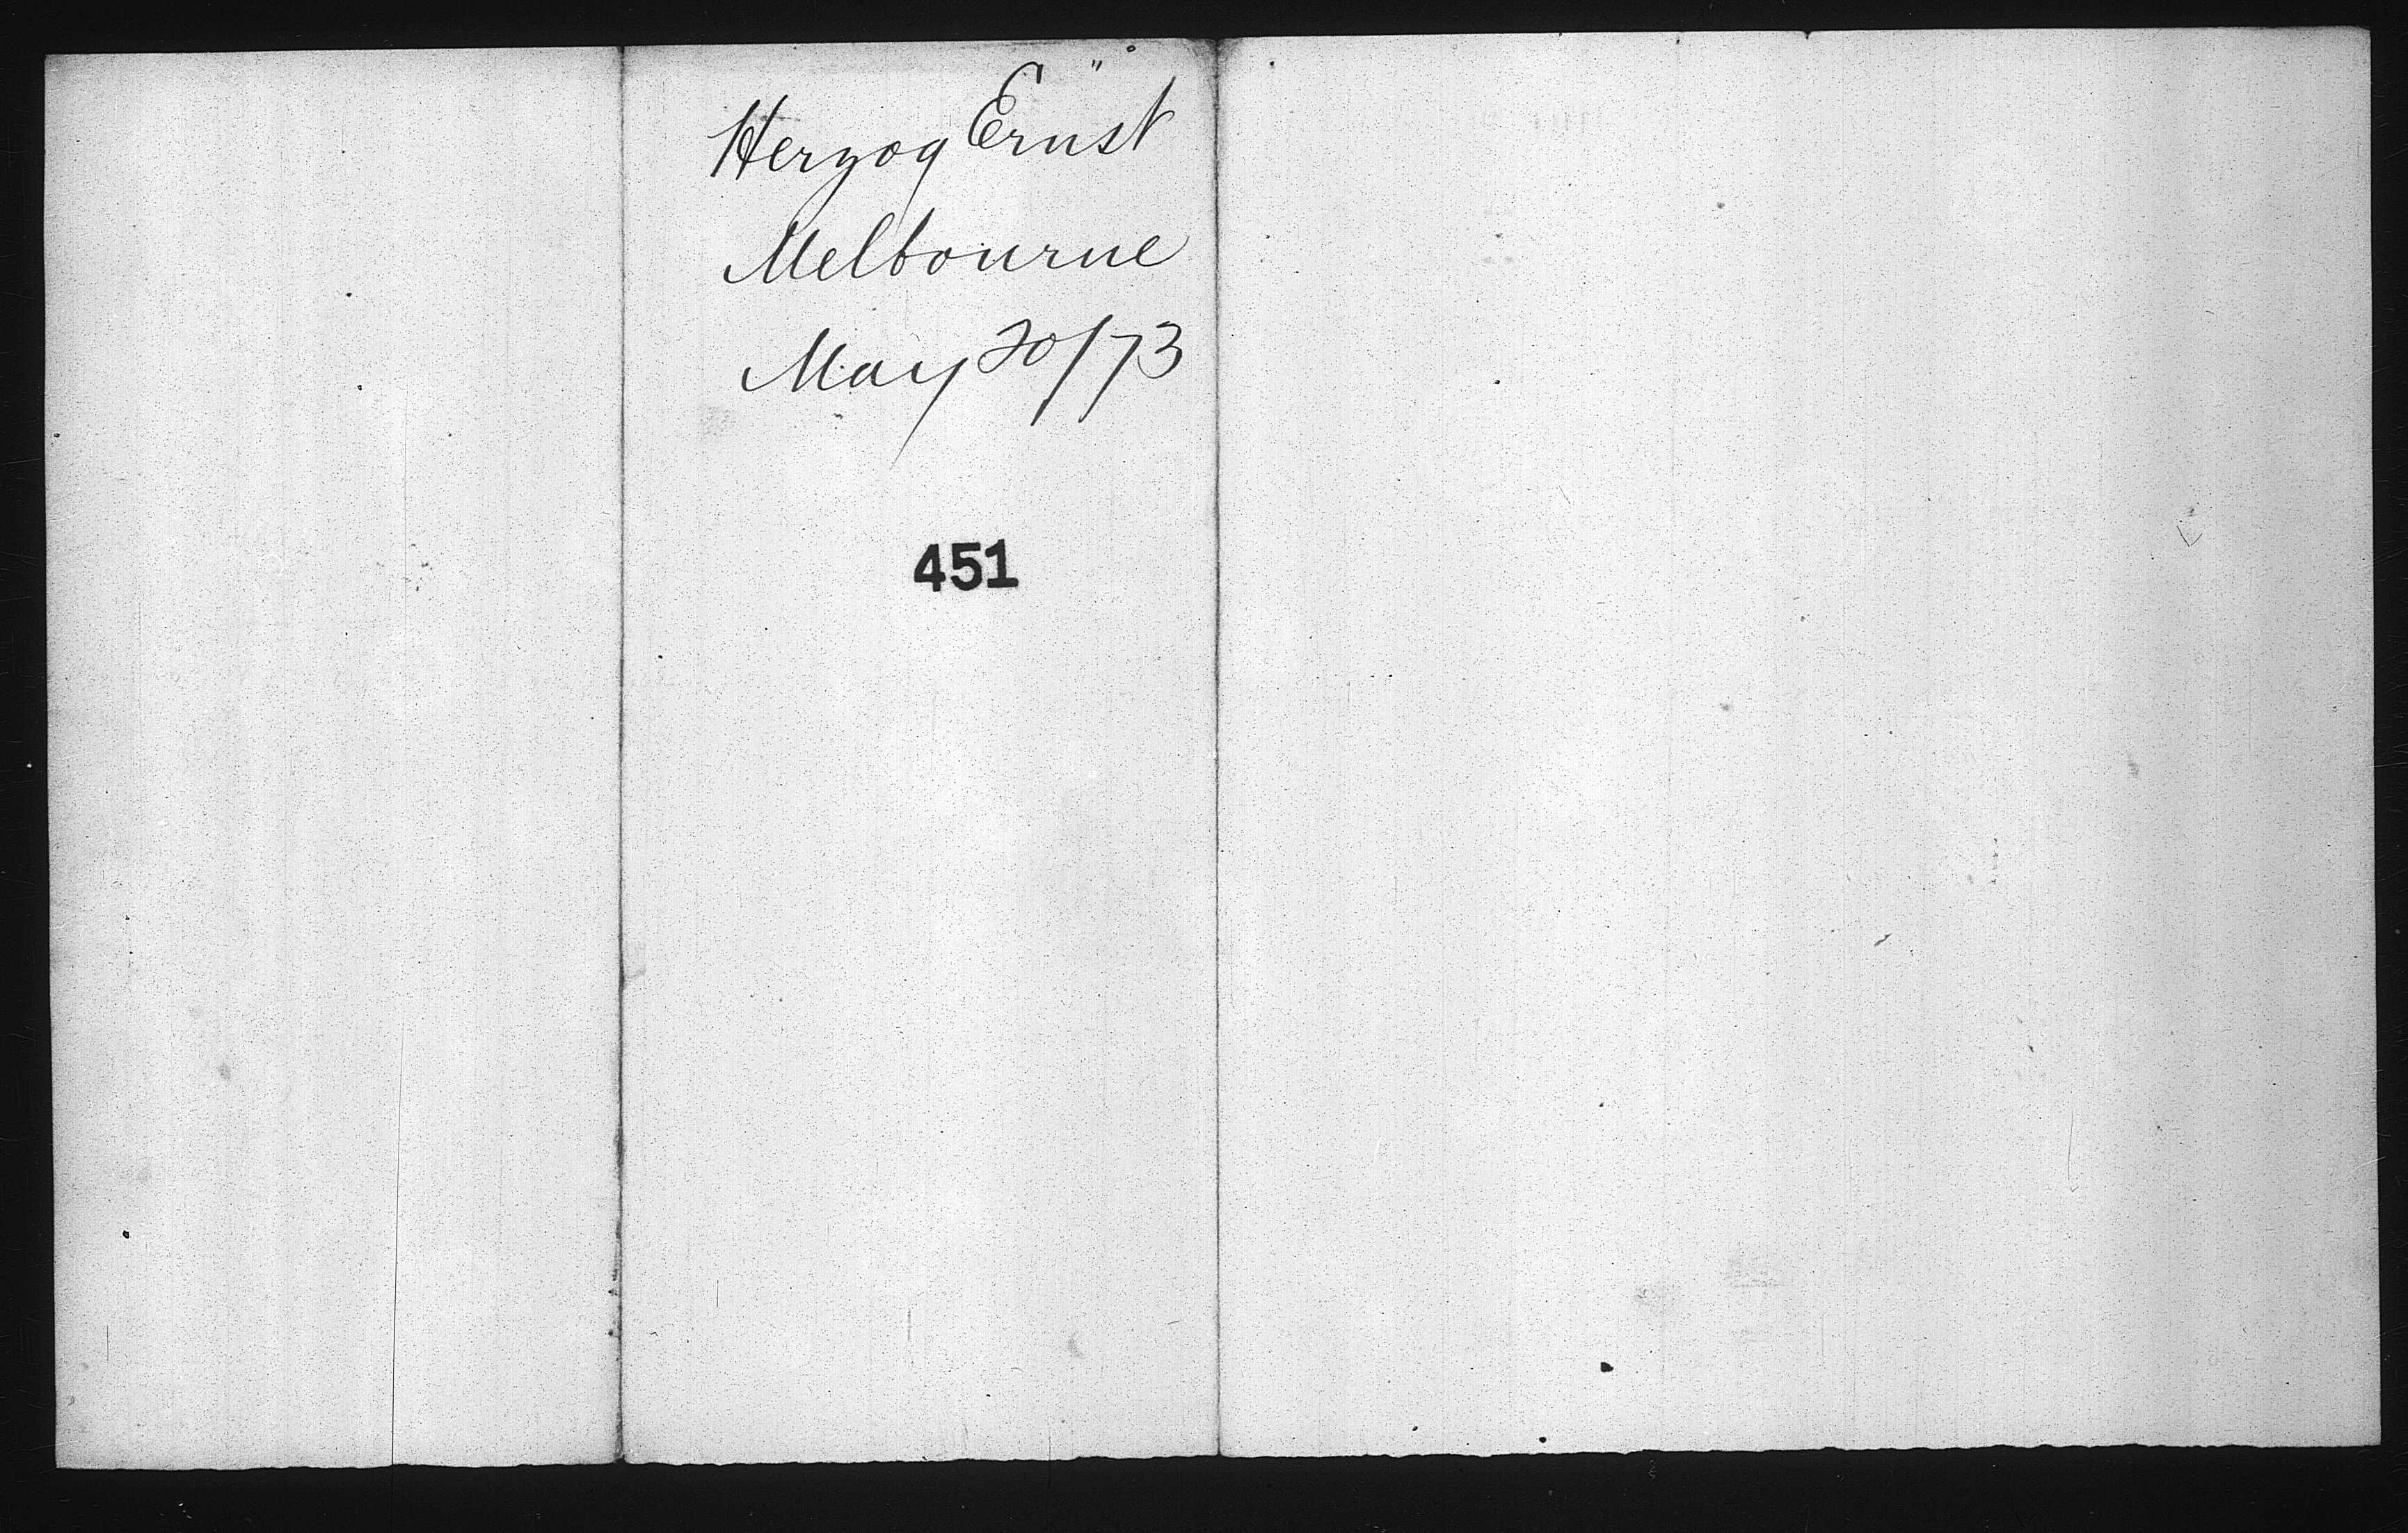 Herzog Ernst
Melbourne
May 20/73
451